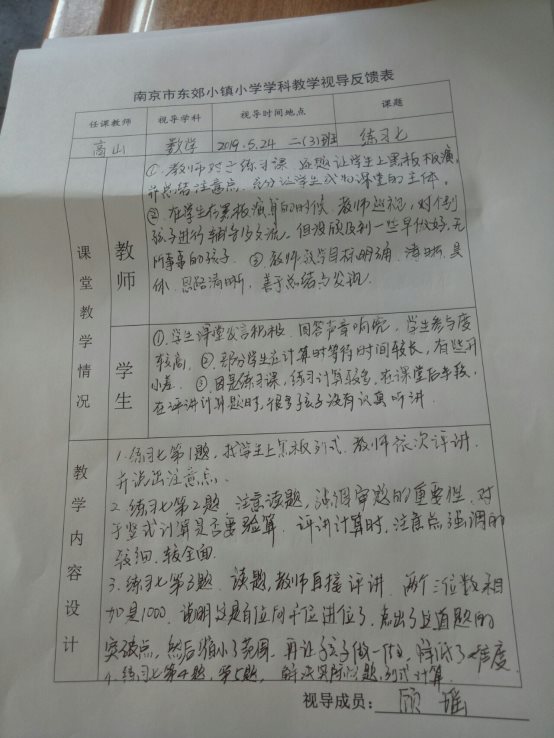 南京市东郊小镇小学学科教学视导反馈表
任课教师 视导学科 视导时间地点 课题
高山 数学 2019.5.24 二(3)班 练习七
课堂教学情况
教师
①. 教师对于练习课 还是让学生上黑板板演,
并总结注意点, 充分让学生成为课堂的主体,
②. 在学生在黑板演算的时候, 教师巡视, 对个别
孩子进行辅导与交流。但没顾及到一些早做好, 无
所事事的孩子. ③ 教师教学目标明确, 清晰, 具
体, 思路清晰, 善于总结与发现.
学生
①. 学生课堂发言积极, 回答声音响亮, 学生参与度
较高. ②. 部分学生在计算时等待时间较长, 有些开
小差. ③ 因是练习课, 练习计算较多, 在课堂后半段,
在评讲计算题时, 很多孩子没有认真听讲.
教学内容设计
1. 练习七第1题, 找学生上黑板列式. 教师依次评讲.
并说出注意点.
2. 练习七第2题 注意读题, 强调审题的重要性, 对
于竖式计算是否要验算. 评讲计算时, 注意点强调的
较细, 较全面.
3. 练习七第3题. 读题, 教师直接评讲. 两个三位数相
加是1000. 说明是百位向千位进位了, 点出了这道题的
突破点, 然后缩小了范围. 再让孩子做一做, 降低了难度
4. 练习七第4题, 第5题, 解决实际问题, 列式计算.
视导成员: 顾瑶